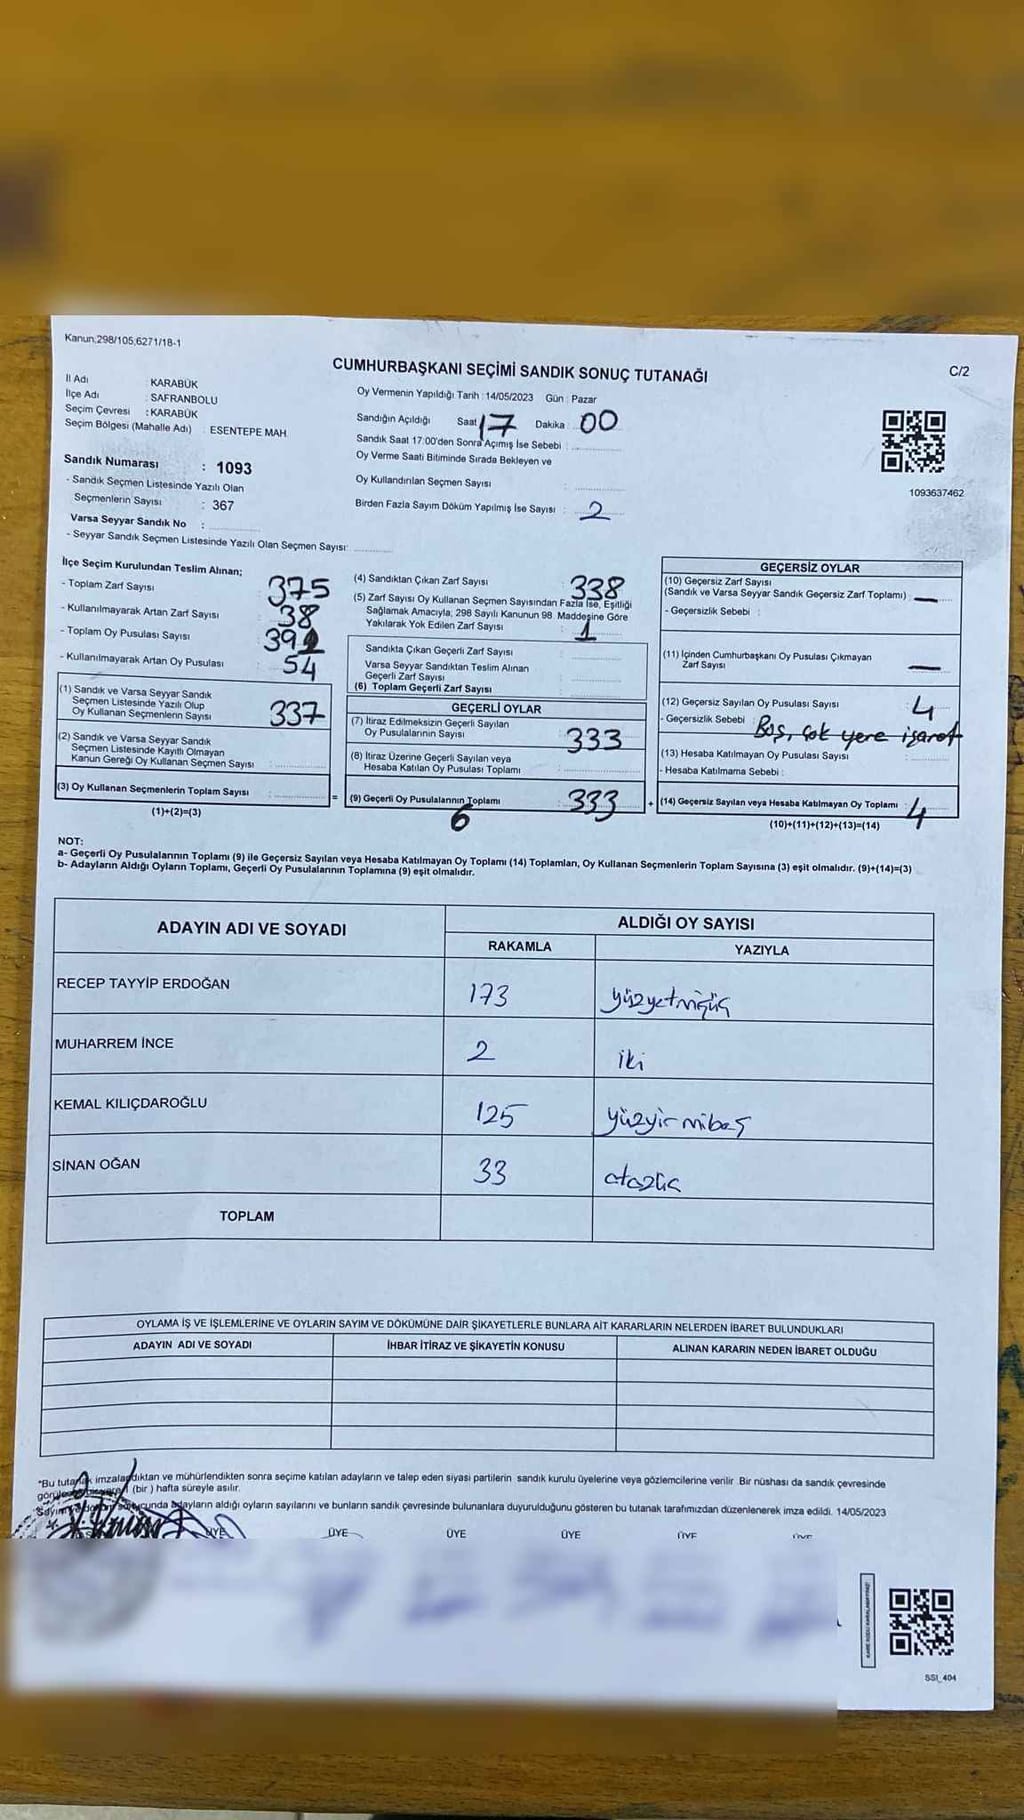 Kanun;298/105,6271/18-1
CUMHURBAŞKANI SEÇİMİ SANDIK SONUÇ TUTANAĞI
C/2
İl Adı : KARABÜK
İlçe Adı : SAFRANBOLU
Seçim Çevresi : KARABÜK
Seçim Bölgesi (Mahalle Adı) : ESENTEPE MAH.
Sandık Numarası : 1093
- Sandık Seçmen Listesinde Yazılı Olan
Seçmenlerin Sayısı : 367
Varsa Seyyar Sandık No :
- Seyyar Sandık Seçmen Listesinde Yazılı Olan Seçmen Sayısı:
Oy Vermenin Yapıldığı Tarih : 14/05/2023 Gün : Pazar
Sandığın Açıldığı Saat 17 Dakika 00
Sandık Saat 17:00'den Sonra Açımış İse Sebebi :
Oy Verme Saati Bitiminde Sırada Bekleyen ve
Oy Kullandırılan Seçmen Sayısı :
Birden Fazla Sayım Döküm Yapılmış İse Sayısı : 2
1093637462
İlçe Seçim Kurulundan Teslim Alınan;
- Toplam Zarf Sayısı : 375
- Kullanılmayarak Artan Zarf Sayısı : 38
- Toplam Oy Pusulası Sayısı : 391
- Kullanılmayarak Artan Oy Pusulası : 54
(1) Sandık ve Varsa Seyyar Sandık
Seçmen Listesinde Yazılı Olup
Oy Kullanan Seçmenlerin Sayısı : 337
(2) Sandık ve Varsa Seyyar Sandık
Seçmen Listesinde Kayıtlı Olmayan
Kanun Gereği Oy Kullanan Seçmen Sayısı :
(3) Oy Kullanan Seçmenlerin Toplam Sayısı :
(1)+(2)=(3)
(4) Sandıktan Çıkan Zarf Sayısı : 338
(5) Zarf Sayısı Oy Kullanan Seçmen Sayısından Fazla İse, Eşitliği
Sağlamak Amacıyla, 298 Sayılı Kanunun 98. Maddesine Göre
Yakılarak Yok Edilen Zarf Sayısı : 1
Sandıkta Çıkan Geçerli Zarf Sayısı :
Varsa Seyyar Sandıktan Teslim Alınan
Geçerli Zarf Sayısı :
(6) Toplam Geçerli Zarf Sayısı :
GEÇERLİ OYLAR
(7) İtiraz Edilmeksizin Geçerli Sayılan
Oy Pusulalarının Sayısı : 333
(8) İtiraz Üzerine Geçerli Sayılan veya
Hesaba Katılan Oy Pusulası Toplamı :
= (9) Geçerli Oy Pusulalarının Toplamı : 333
6
GEÇERSİZ OYLAR
(10) Geçersiz Zarf Sayısı
(Sandık ve Varsa Seyyar Sandık Geçersiz Zarf Toplamı) : —
- Geçersizlik Sebebi :
(11) İçinden Cumhurbaşkanı Oy Pusulası Çıkmayan
Zarf Sayısı : —
(12) Geçersiz Sayılan Oy Pusulası Sayısı : 4
- Geçersizlik Sebebi : Boş, çok yere işaret
(13) Hesaba Katılmayan Oy Pusulası Sayısı :
- Hesaba Katılmama Sebebi :
+ (14) Geçersiz Sayılan veya Hesaba Katılmayan Oy Toplamı : 4
(10)+(11)+(12)+(13)=(14)
NOT:
a- Geçerli Oy Pusulalarının Toplamı (9) ile Geçersiz Sayılan veya Hesaba Katılmayan Oy Toplamı (14) Toplamları, Oy Kullanan Seçmenlerin Toplam Sayısına (3) eşit olmalıdır. (9)+(14)=(3)
b- Adayların Aldığı Oyların Toplamı, Geçerli Oy Pusulalarının Toplamına (9) eşit olmalıdır.
ADAYIN ADI VE SOYADI
ALDIĞI OY SAYISI
RAKAMLA YAZIYLA
RECEP TAYYİP ERDOĞAN 173 yüzyetmişüç
MUHARREM İNCE 2 iki
KEMAL KILIÇDAROĞLU 125 yüzyirmibeş
SİNAN OĞAN 33 otuzüç
TOPLAM
OYLAMA İŞ VE İŞLEMLERİNE VE OYLARIN SAYIM VE DÖKÜMÜNE DAİR ŞİKAYETLERLE BUNLARA AİT KARARLARIN NELERDEN İBARET BULUNDUKLARI
ADAYIN ADI VE SOYADI İHBAR İTİRAZ VE ŞİKAYETİN KONUSU ALINAN KARARIN NEDEN İBARET OLDUĞU
*Bu tutanak imzalandıktan ve mühürlendikten sonra seçime katılan adayların ve talep eden siyasi partilerin sandık kurulu üyelerine veya gözlemcilerine verilir. Bir nüshası da sandık çevresinde
(bir ) hafta süreyle asılır.
adayların aldığı oyların sayılarını ve bunların sandık çevresinde bulunanlara duyurulduğunu gösteren bu tutanak tarafımızdan düzenlenerek imza edildi. 14/05/2023
ÜYE ÜYE ÜYE ÜYE ÜYE ÜYE
SSI_404